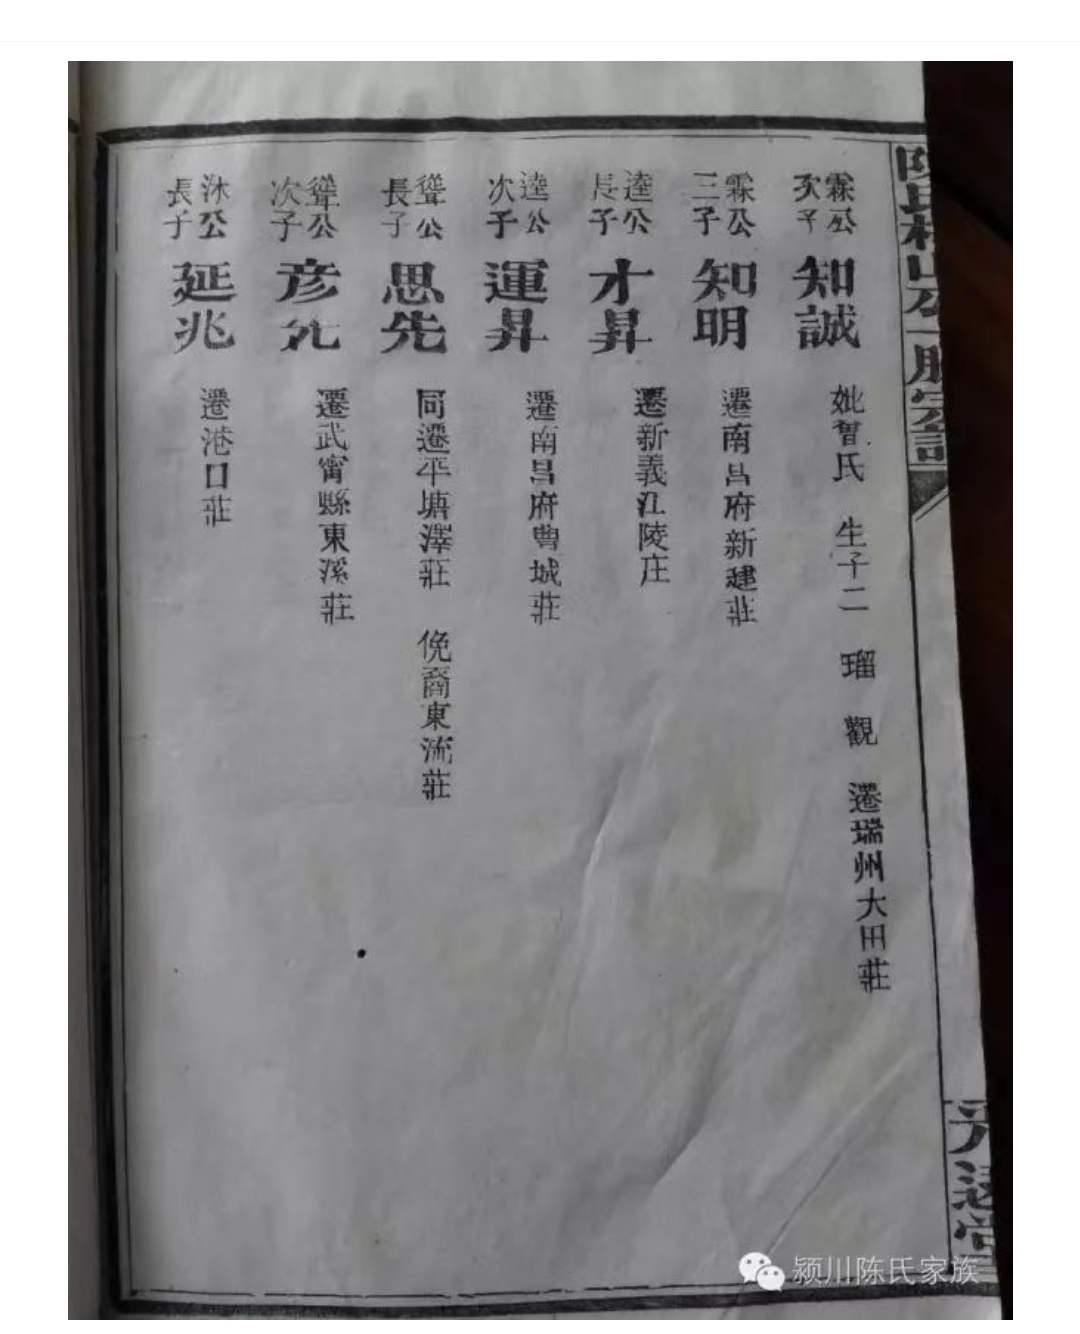 霖公次子 知誠 妣曾氏 生子二 瑠 觀 遷瑞州大田莊
霖公三子 知明 遷南昌府新建莊
逵公長子 才昇 遷新義江陵庄
逵公次子 運昇 遷南昌府豐城莊
聳公長子 思先 同遷平塘澤莊 俛裔東流莊
聳公次子 彦先 遷武甯縣東溪莊
沐公長子 延兆 遷港口莊
颍川陈氏家族